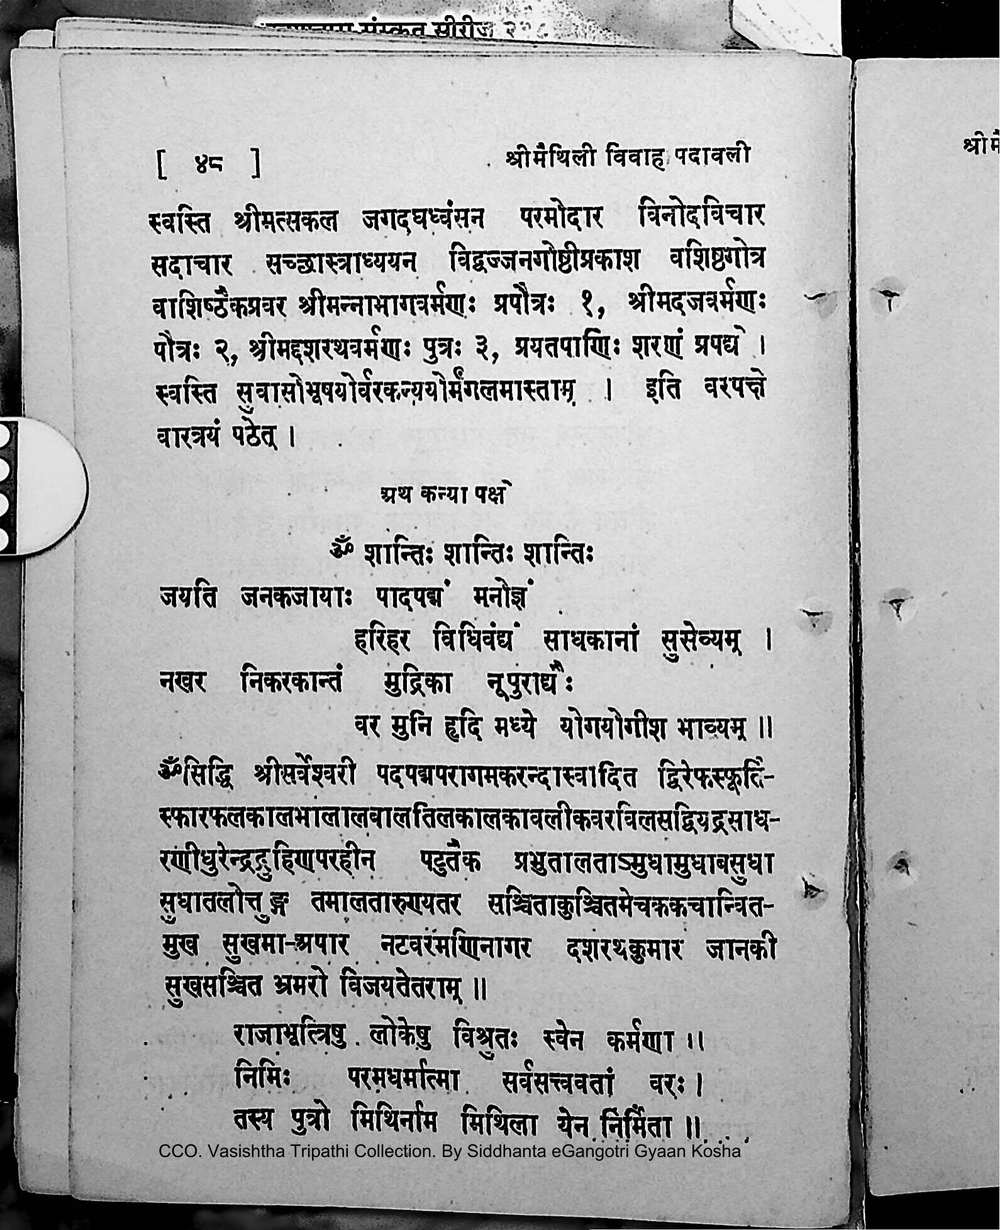 संस्कृत सीरीज
[ ४८ ] श्रीमैथिली विवाह पदावली
स्वस्ति श्रीमत्सकल जगदघध्वंसन परमोदार विनोदविचार
सदाचार सच्छास्त्राध्ययन विद्वज्जनगोष्ठीप्रकाश वशिष्ठगोत्र
वाशिष्ठैकप्रवर श्रीमन्नाभागवर्मणः प्रपौत्रः १, श्रीमदजवर्मणः
पौत्रः २, श्रीमद्दशरथवर्मणः पुत्रः ३, प्रयतपाणिः शरणं प्रपद्ये ।
स्वस्ति सुवासोभूषयोर्वरकन्ययोर्मंगलमास्ताम् । इति वरपक्षे
वारत्रयं पठेत् ।
अथ कन्या पक्षे
ॐ शान्तिः शान्तिः शान्तिः
जयति जनकजायाः पादपद्मं मनोज्ञं
हरिहर विधिवंद्यं साधकानां सुसेव्यम् ।
नखर निकरकान्तं मुद्रिका नूपुराद्यैः
वर मुनि हृदि मध्ये योगयोगीश भाव्यम् ॥
ॐसिद्धि श्रीसर्वेश्वरी पदपद्मपरागमकरन्दास्वादित द्विरेफस्फूर्ति-
स्फारफलकालभालालवालतिलकालकावलीकवरविलसद्वियद्रसाध-
रणीधुरेन्द्रद्रुहिणपरहीन पटुतैक प्रभुतालताऽमुधामुधाबसुधा
सुधातलोत्तुङ्ग तमालतारुण्यतर सञ्चिताकुञ्चितमेचककचान्वित-
मुख सुखमा-अपार नटवरमणिनागर दशरथकुमार जानकी
सुखसञ्चित भ्रमरो विजयतेतराम् ॥
राजाभूत्त्रिषु लोकेषु विश्रुतः स्वेन कर्मणा ।।
निमिः परमधर्मात्मा सर्वसत्त्ववतां वरः ।
तस्य पुत्रो मिथिर्नाम मिथिला येन निर्मिता ॥
CCO. Vasishtha Tripathi Collection. By Siddhanta eGangotri Gyaan Kosha
श्रीमै